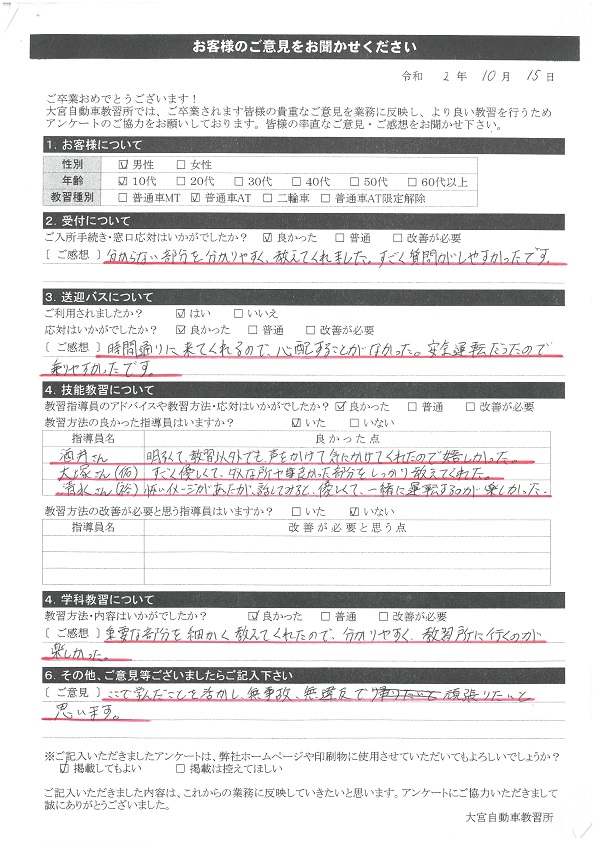 お客様のご意見をお聞かせください
令和 2 年 10 月 15 日
ご卒業おめでとうございます！
大宮自動車教習所では、ご卒業されます皆様の貴重なご意見を業務に反映し、より良い教習を行うため
アンケートのご協力をお願いしております。皆様の率直なご意見・ご感想をお聞かせ下さい。
1. お客様について
性別 ☑ 男性 □ 女性
年齢 ☑ 10代 □ 20代 □ 30代 □ 40代 □ 50代 □ 60代以上
教習種別 □ 普通車MT ☑ 普通車AT □ 二輪車 □ 普通車AT限定解除
2. 受付について
ご入所手続き・窓口応対はいかがでしたか？ ☑ 良かった □ 普通 □ 改善が必要
［ ご感想 ］ 分からない部分を分かりやすく、教えてくれました。すごく質問がしやすかったです。
3. 送迎バスについて
ご利用されましたか？ ☑ はい □ いいえ
応対はいかがでしたか？ ☑ 良かった □ 普通 □ 改善が必要
［ ご感想 ］ 時間通りに来てくれるので、心配することがなかった。安全運転だったので
乗りやすかったです。
4. 技能教習について
教習指導員のアドバイスや教習方法・応対はいかがでしたか？ ☑ 良かった □ 普通 □ 改善が必要
教習方法の良かった指導員はいますか？ ☑ いた □ いない
指導員名 良かった点
酒井さん 明るくて、教習以外でも、声をかけて気にかけてくれたので嬉しかった。
大塚さん(仮) すごく優しくて、ダメな所や良かった部分をしっかり教えてくれた。
清水さん 怖いイメージがあたが、話してみると、優しくて、一緒に運転するのが楽しかった.
教習方法の改善が必要と思う指導員はいますか？ □ いた ☑ いない
指導員名 改善が必要と思う点
4. 学科教習について
教習方法・内容はいかがでしたか？ ☑ 良かった □ 普通 □ 改善が必要
［ ご感想 ］ 重要な部分を細かく教えてくれたので、分かりやすく、教習所に行くのが
楽しかった。
6. その他、ご意見等ございましたらご記入下さい
［ ご意見 ］ ここで学んだことを活かし、無事故、無違反で 頑張りたいと
思います。
※ご記入いただきましたアンケートは、弊社ホームページや印刷物に使用させていただいてもよろしいでしょうか？
☑ 掲載してもよい □ 掲載は控えてほしい
ご記入いただきました内容は、これからの業務に反映していきたいと思います。アンケートにご協力いただきまして
誠にありがとうございました。
大宮自動車教習所